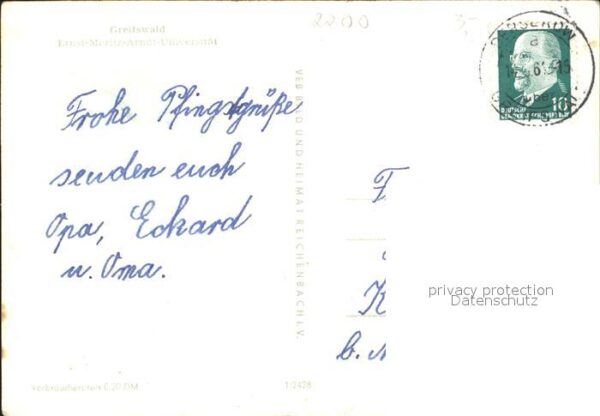 Greifswald
Ernst-Moritz-Arndt-Universität
2200
Frohe Pfingstgrüße
senden euch
Opa, Eckard
u. Oma.
VEB BILD UND HEIMAT REICHENBACH I. V.
10
DEUTSCHE
DEMOKRATISCHE REPUBLIK
F
K
b. N
privacy protection
Datenschutz
Verbraucherpreis 0,20 DM
1/2428